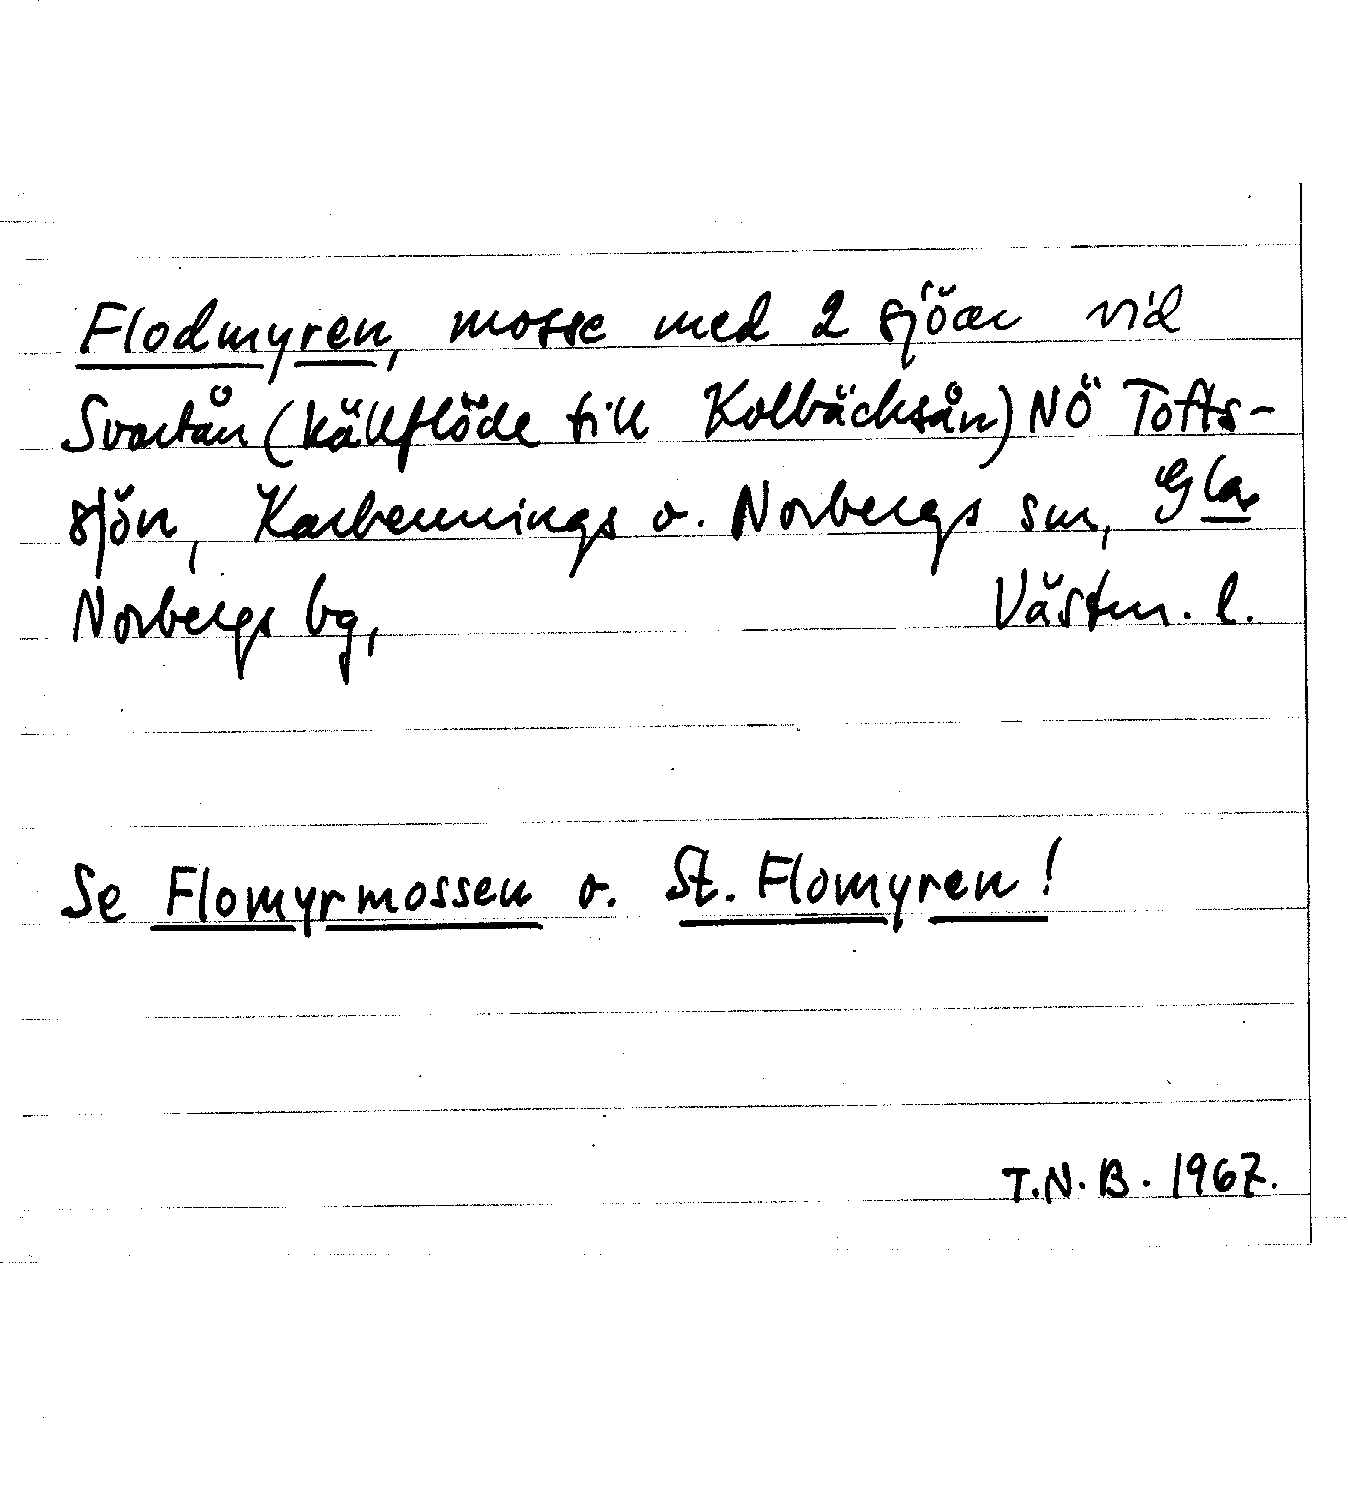 Flodmyren, mosse med 2 sjöar vid
Svartån (källflöde till Kolbäcksån) NÖ Tofts-
sjön, Karbennings o. Norbergs snr, Gla
Norbergs bg, Västm. l.
Se Flomyrmossen o. St. Flomyren!
T.N.B. 1967.